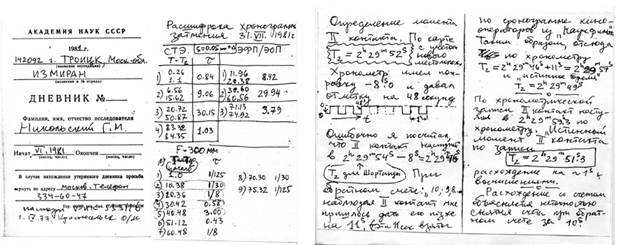 АКАДЕМИЯ НАУК СССР
1981 г.
142092 г. ТРОИЦК, Моск. обл.
ИЗМИРАН
ДНЕВНИК №
Фамилия, имя, отчество исследователя
Никольский Г.М.
Начат VI.1981 Окончен
В случае нахождения утерянного дневника просьба
вернуть по адресу Москов. Телефон
334-60-47
Расшифровка хронограммы
затмения 31.VII.1981 г.
T-T₀ τ
1) 0.26 0.84 1) 11.96 8.42
2) 6.56 9.06 2) 30.60 29.94
15.62 60.56
3) 20.72 30.15 3) 71.13 3.79
50.87 74.92
4) 83.32 1.03
84.35
F = 300 мм
τ
1) 1.0 1/125 8) 70.30 1/30
2) 10.38 1/30 9) 75.32 1/125
3) 20.36 1/8
4) 30.42 0.58
5) 40.48 3.00
6) 51.12 0.43
7) 60.48 1/8
Определение момента
II контакта. По карте
Хронометр имел поп-
равку -8ˢ.0 и давал
отметку на 48 секунде
Ошибочно я посчитал,
что II контакт наступил
в 2ʰ29ᵐ54ˢ - 8ˢ = 2ʰ29ᵐ46ˢ
T₂ для Шортанды. При
обратном счете: 10, 9, 8...
наблюдая II контакт мне
пришлось дать его позже
на 11ˢ
по хронограмме кино-
Таким образом, отсюда
по хронометру
T₂ = 2ʰ29ᵐ46ˢ + 11ˢ = 2ʰ29ᵐ57ˢ
и истинное время
T₂ = 2ʰ29ᵐ49ˢ
По хронометрической
записи II контакт насту-
пил в 2ʰ29ᵐ59ˢ.3 по
хронометру. Истинный
момент II контакта
по записи
T₂ = 2ʰ29ᵐ51ˢ.3
расхождение на ~1ˢ с
вычисленным.
Расхождение со счетом
объясняется неточностью
снятия счета при обрат-
ном счете за 10ˢ.